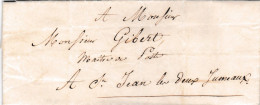 A Monsieur
Monsieur Gibert
Maître de Poste
A St Jean les deux Jumeaux